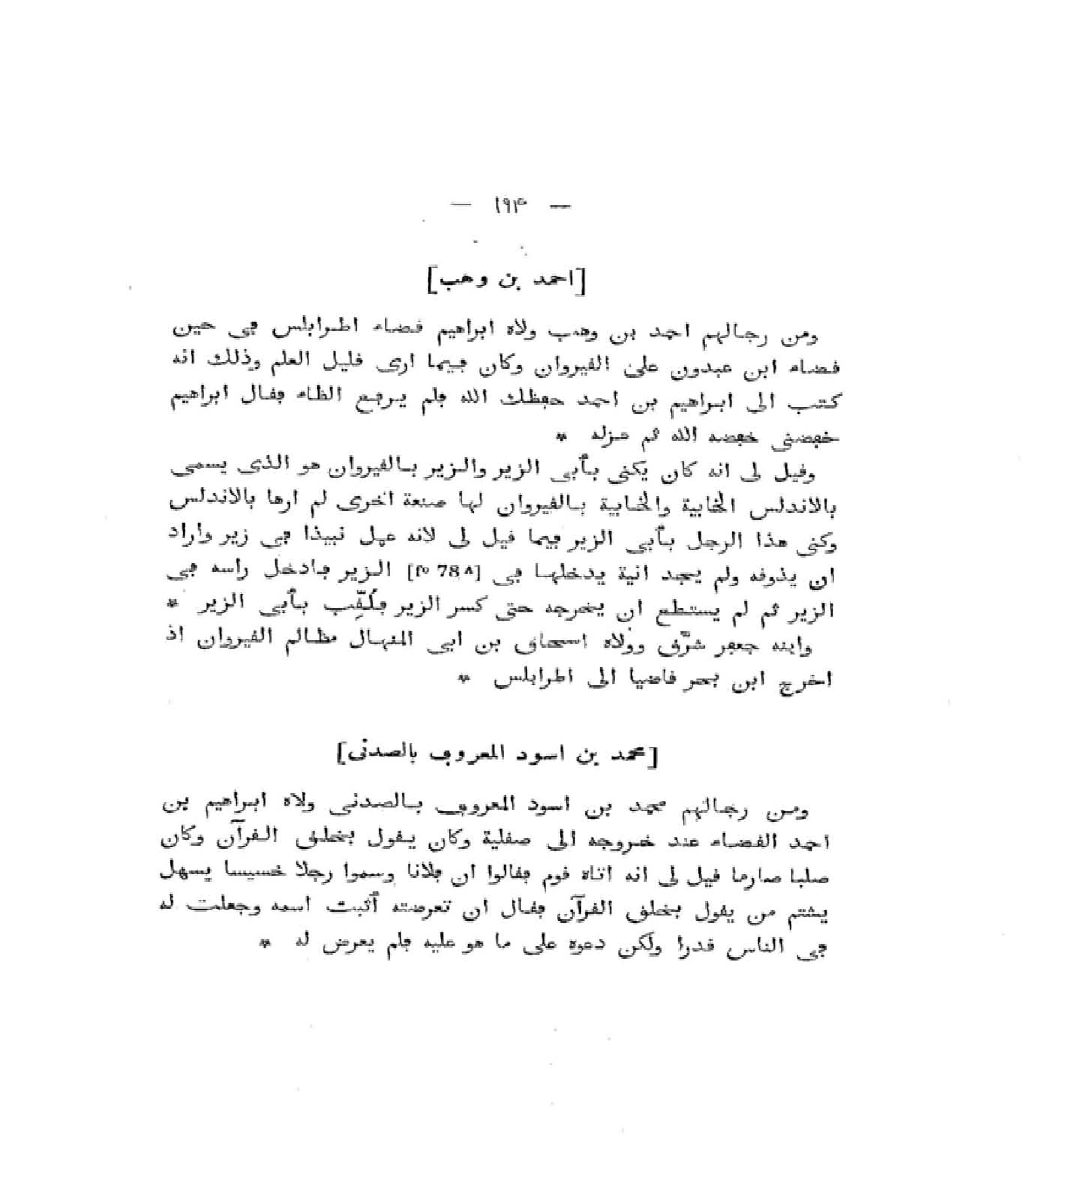 — ١٩٣ —
[احمد بن وهب]
ومن رجالهم احمد بن وهب ولاه ابراهيم قضاء اطرابلس في حين
قضاء ابن عبدون على القيروان وكان فيما ارى قليل العلم وذلك انه
كتب الى ابراهيم بن احمد حفظك الله فلم يرفع الظاء فقال ابراهيم
خفضني خفضه الله ثم عزله *
وقيل لي انه كان يكنى بأبي الزير والزير بالقيروان هو الذي يسمى
بالاندلس الخابية والخابية بالقيروان لها صنعة اخرى لم ارها بالاندلس
وكني هذا الرجل بأبي الزير فيما قيل لي لانه عمل نبيذا في زير واراد
ان يذوقه ولم يجد انية يدخلها في [f° 78 ʌ] الزير فادخل راسه في
الزير ثم لم يستطع ان يخرجه حتى كسر الزير فلُقِّب بأبي الزير *
وابنه جعفر شرّق وولاه اسحاق بن ابي المنهال مظالم القيروان اذ
اخرج ابن بحر قاضيا الى اطرابلس *
[محمد بن اسود المعروف بالصدني]
ومن رجالهم محمد بن اسود المعروف بالصدني ولاه ابراهيم بن
احمد القضاء عند خروجه الى صقلية وكان يقول بخلق القرآن وكان
صلبا صارما قيل لي انه اتاه قوم فقالوا ان فلانا وسموا رجلا خسيسا يسهل
يشتم من يقول بخلق القرآن فقال ان تعرضته أثبت اسمه وجعلت له
في الناس قدرا ولكن دعوه على ما هو عليه فلم يعرض له *